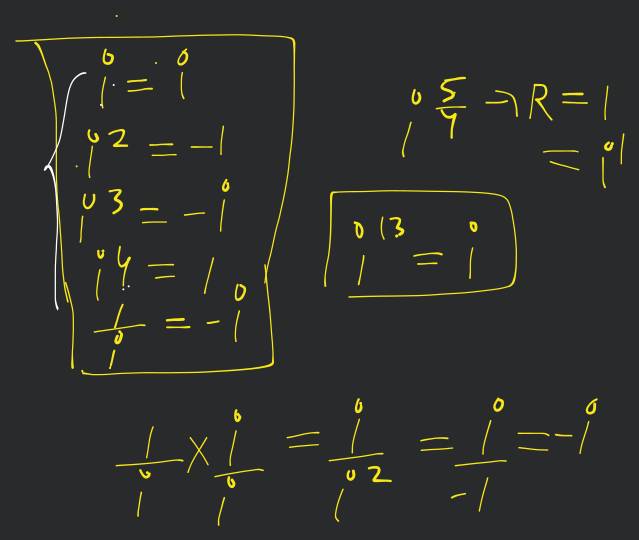 i = i
i² = -1
i³ = -i
i⁴ = 1
1/i = -i
i^(5/4) → R = 1
= i¹
i¹³ = i
1/i × i/i = i/i² = i/-1 = -i